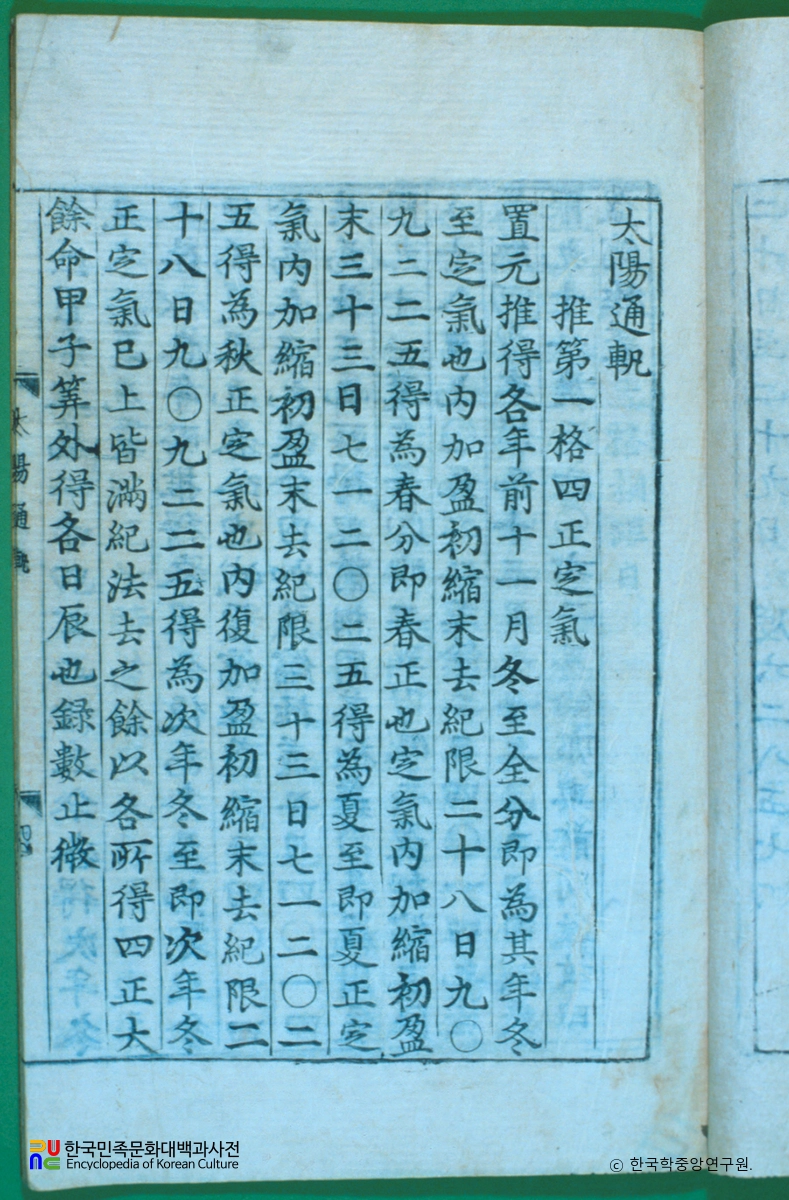 太陽通軌
推第一格四正定氣
置元推得各年前十一月冬至全分即為其年冬
至定氣也内加盈初縮末去紀限二十八日九〇
九二二五得為春分即春正也定氣内加縮初盈
末三十三日七一二〇二五得為夏至即夏正定
氣内加縮初盈末去紀限三十三日七一二〇二
五得為秋正定氣也内復加盈初縮末去紀限二
十八日九〇九二二五得為次年冬至即次年冬
正定氣已上皆滿紀法去之餘以各所得四正大
餘命甲子筭外得各日辰也錄數止微
太陽通軌
四
한국민족문화대백과사전
Encyclopedia of Korean Culture
ⓒ 한국학중앙연구원.